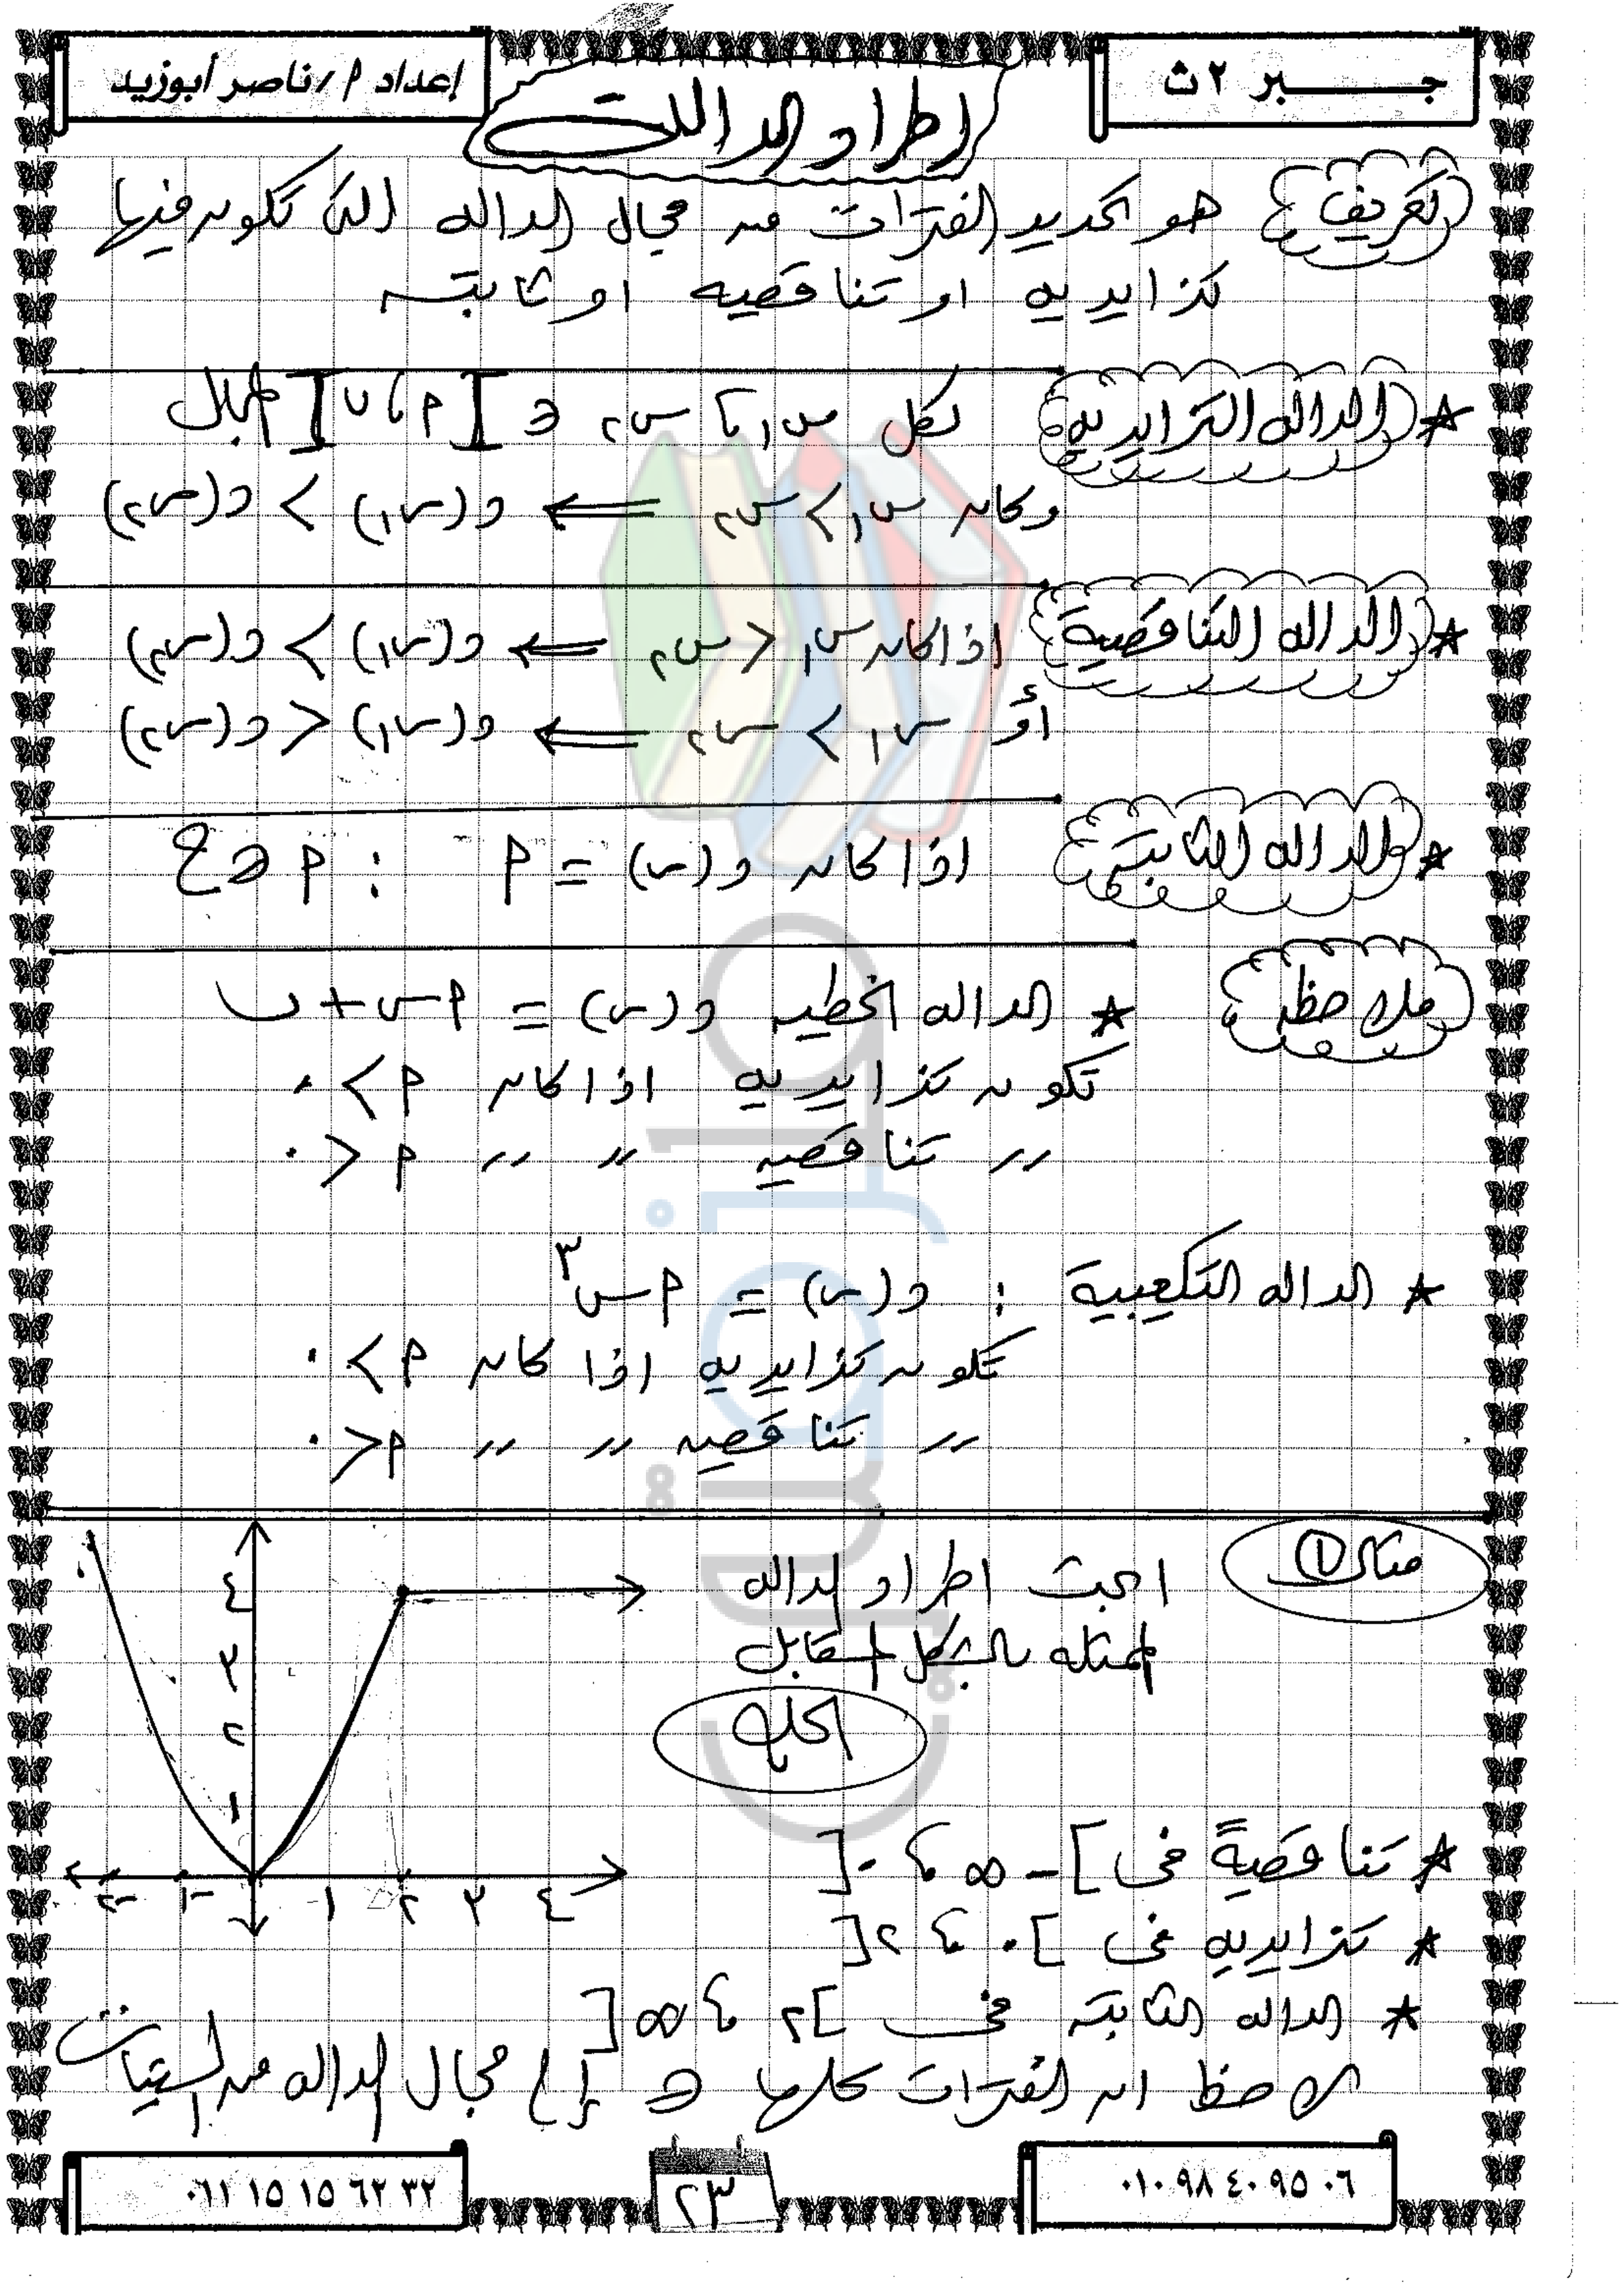 جـــبر ٢ ث
إعداد م/ناصر أبوزيد
اطراد الدالة
تعريف هو تحديد الفترات من مجال الداله التى تكون فيها
تزايديه او تناقصيه او ثابته
* الداله التزايديه لكل س١ ، س٢ ∈ ]م ، ب[ المجال
وكان س١ > س٢ ⟸ د(س١) > د(س٢)
* الداله التناقصية اذا كان س١ < س٢ ⟸ د(س١) > د(س٢)
أو س١ > س٢ ⟸ د(س١) < د(س٢)
* الداله الثابته اذا كان د(س) = م : م ∈ ح
ملاحظه * الداله الخطيه د(س) = م س + ب
تكون تزايديه اذا كان م > ٠
〃 تناقصيه 〃 〃 م < ٠
* الداله التكعيبية : د(س) = م س٣
تكون تزايديه اذا كان م > ٠
〃 تناقصيه 〃 〃 م < ٠
مثال ١ ابحث اطراد الداله
الممثله بالشكل المقابل
٤
٣
٢
١
-٢ -١ ١ ٢ ٣ ٤
الحل
* تناقصيةً فى ]-∞ ، ٠[
* تزايديه فى ]٠ ، ٢[
* الداله الثابته فى ]٢ ، ∞[
لاحظ ان الفترات كلها ∈ إلى مجال الداله من السينات
٠١٠ ٩٨ ٤٠ ٩٥ ٠٦
٢٣
٠١١ ١٥ ١٥ ٦٢ ٣٢